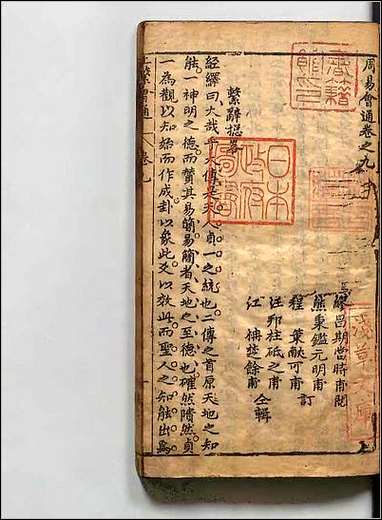 周易會通卷之九
期當時甫閱
熊秉鑑元明甫
程 獻可甫 訂
汪邦柱砥之甫
江 楚餘甫 仝輯
繫辭
經繹曰大哉乎大傳
人貞一之統也二傳之首原天地之知
能一神明之德而贊其易簡易簡者天地之至德也確然隤然貞
一為觀以知始而作成卦以象此爻以效此而聖人之知能出焉
卷九
日本
政府
圖書
淺草文庫